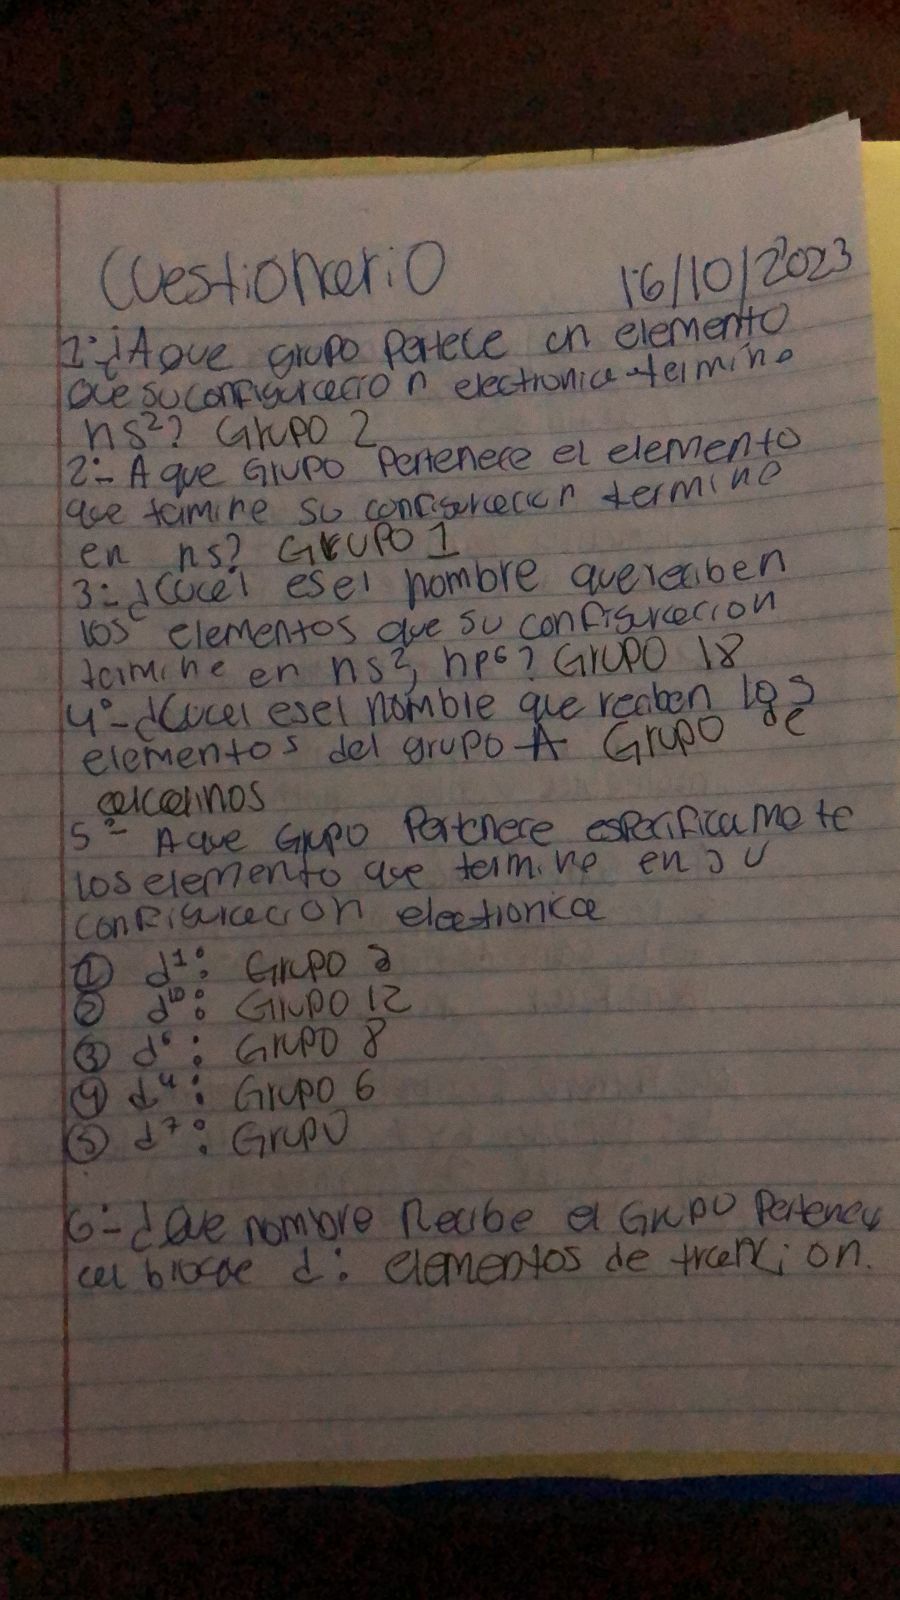 Cuestionario 16/10/2023
1-¿A que grupo Pertece un elemento
que su configuracion electronica termine
ns²? Grupo 2
2- A que Grupo Pertenece el elemento
que termine su configuracion termine
en ns? GRUPO 1
3-¿Cual es el nombre que reciben
los elementos que su configuracion
termine en ns², np⁶? Grupo 18
4-¿Cual es el nombre que reciben los
elementos del grupo A Grupo de
alcalinos
5- A que Grupo Pertenece especificamete
los elemento que termine en su
configuracion electronica
① d¹: Grupo
② d¹⁰: Grupo 12
③ d⁶: Grupo 8
④ d⁴: Grupo 6
⑤ d⁷: Grupo
6-¿Que nombre Recibe el Grupo Pertenece
al bloque d: elementos de transion.